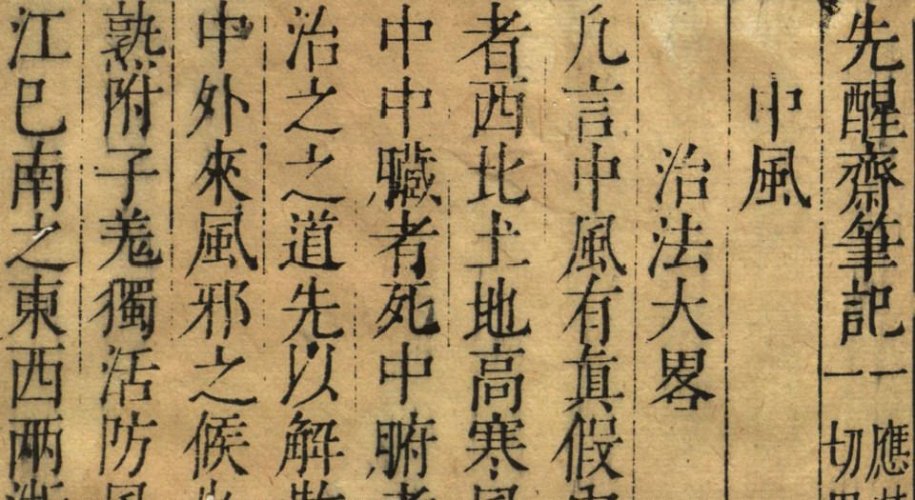 先醒齋筆記
一應
一切
中風
治法大畧
凢言中風有眞假
者西北土地高寒風
中中臟者死中腑者
治之之道先以解散
中外來風邪之候
熟附子羗獨活防風
江巳南之東西兩浙